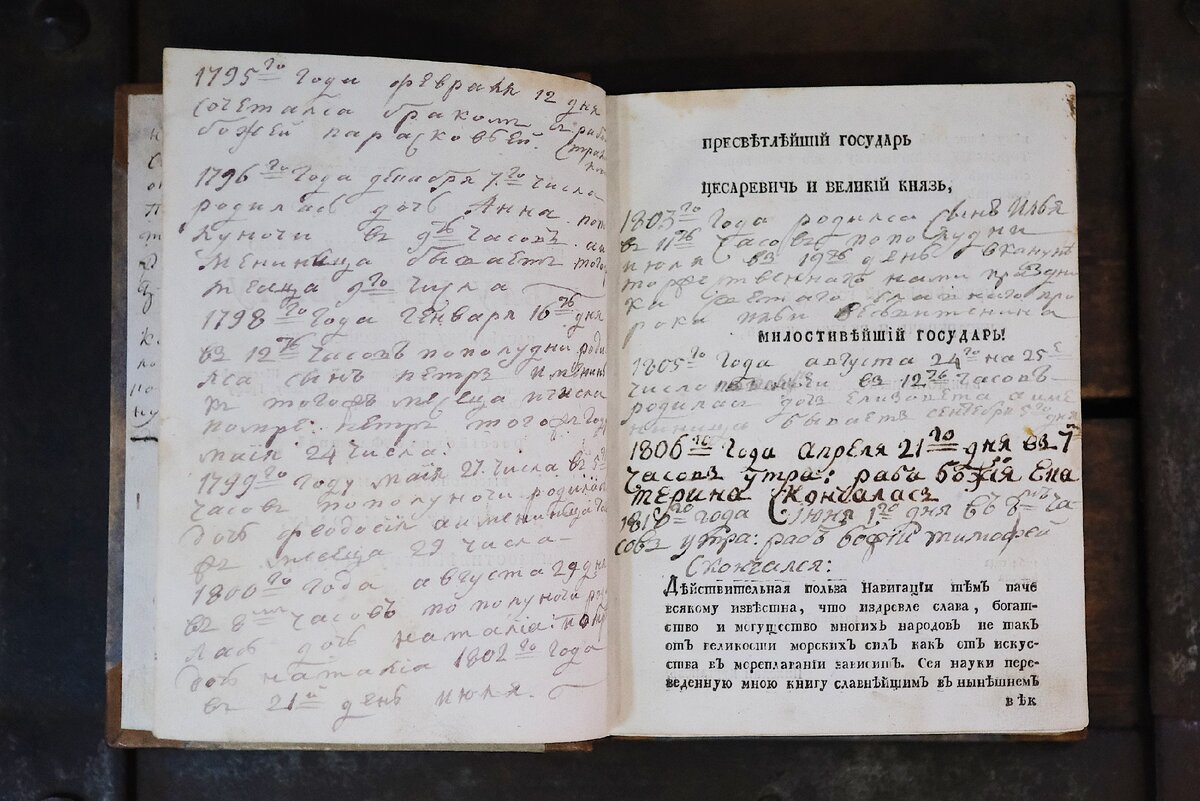 1795го Года февраля 12 дня
сочетался браком с рабой
божей парасковьей.
1796го Года декабря 7го числа
родилась дочь Анна. попо
луночи въ 9ть часовъ. аи
менинница бываетъ того
месяца 9го числа
1798го Года Генваря 16ть дня
въ 12ть часовъ пополудни роди
лся сынъ петръ именин
къ тогожъ месеца числа
помре: петръ тогожъ году
маия 24 числа:
1799го Году маия 27 числа въ 5ть
часовъ пополуночи родилась
дочь феодосия аименинница то
жъ месеца 29 числа
1800го Года августа 29 дня
въ 8 часовъ пополуночи роди
лась дочь наталиа: помре
дочь наталиа 1802го Года
въ 21й день июля.
ПРЕСВѢТЛѢЙШІЙ ГОСУДАРЬ
ЦЕСАРЕВИЧЬ И ВЕЛИКІЙ КНЯЗЬ,
1803го Года родился сынъ Илья
въ 11ть часовъ пополудни
июля въ 19ть день вканунѣ
торжественнаго нами праздни
ка святаго славнаго про
рока ильи
МИЛОСТИВѢЙШІЙ ГОСУДАРЬ!
1805го Года августа 24го на 25е
число въ 12ть часовъ
родилась дочь Елизавета аиме
нинница бываетъ сентебря 5го дня
1806го Года Апреля 21го дня въ 7й
часовъ утра: раба божія Ека
терина Скончалась
1816го года Июня 1го дня въ 8мъ ча
совъ утра: рабъ божій тимофей
Скончался:
Дѣйствительная польза Навигаціи тѣмъ паче
всякому извѣстна, что издревле слава, богат-
ство и могущество многихъ народовъ не такъ
отъ великости морскихъ силъ какъ отъ искус-
ства въ мореплаваніи зависитъ. Сея науки пере-
веденную мною книгу славнѣйшимъ въ нынѣшнемъ
вѣк